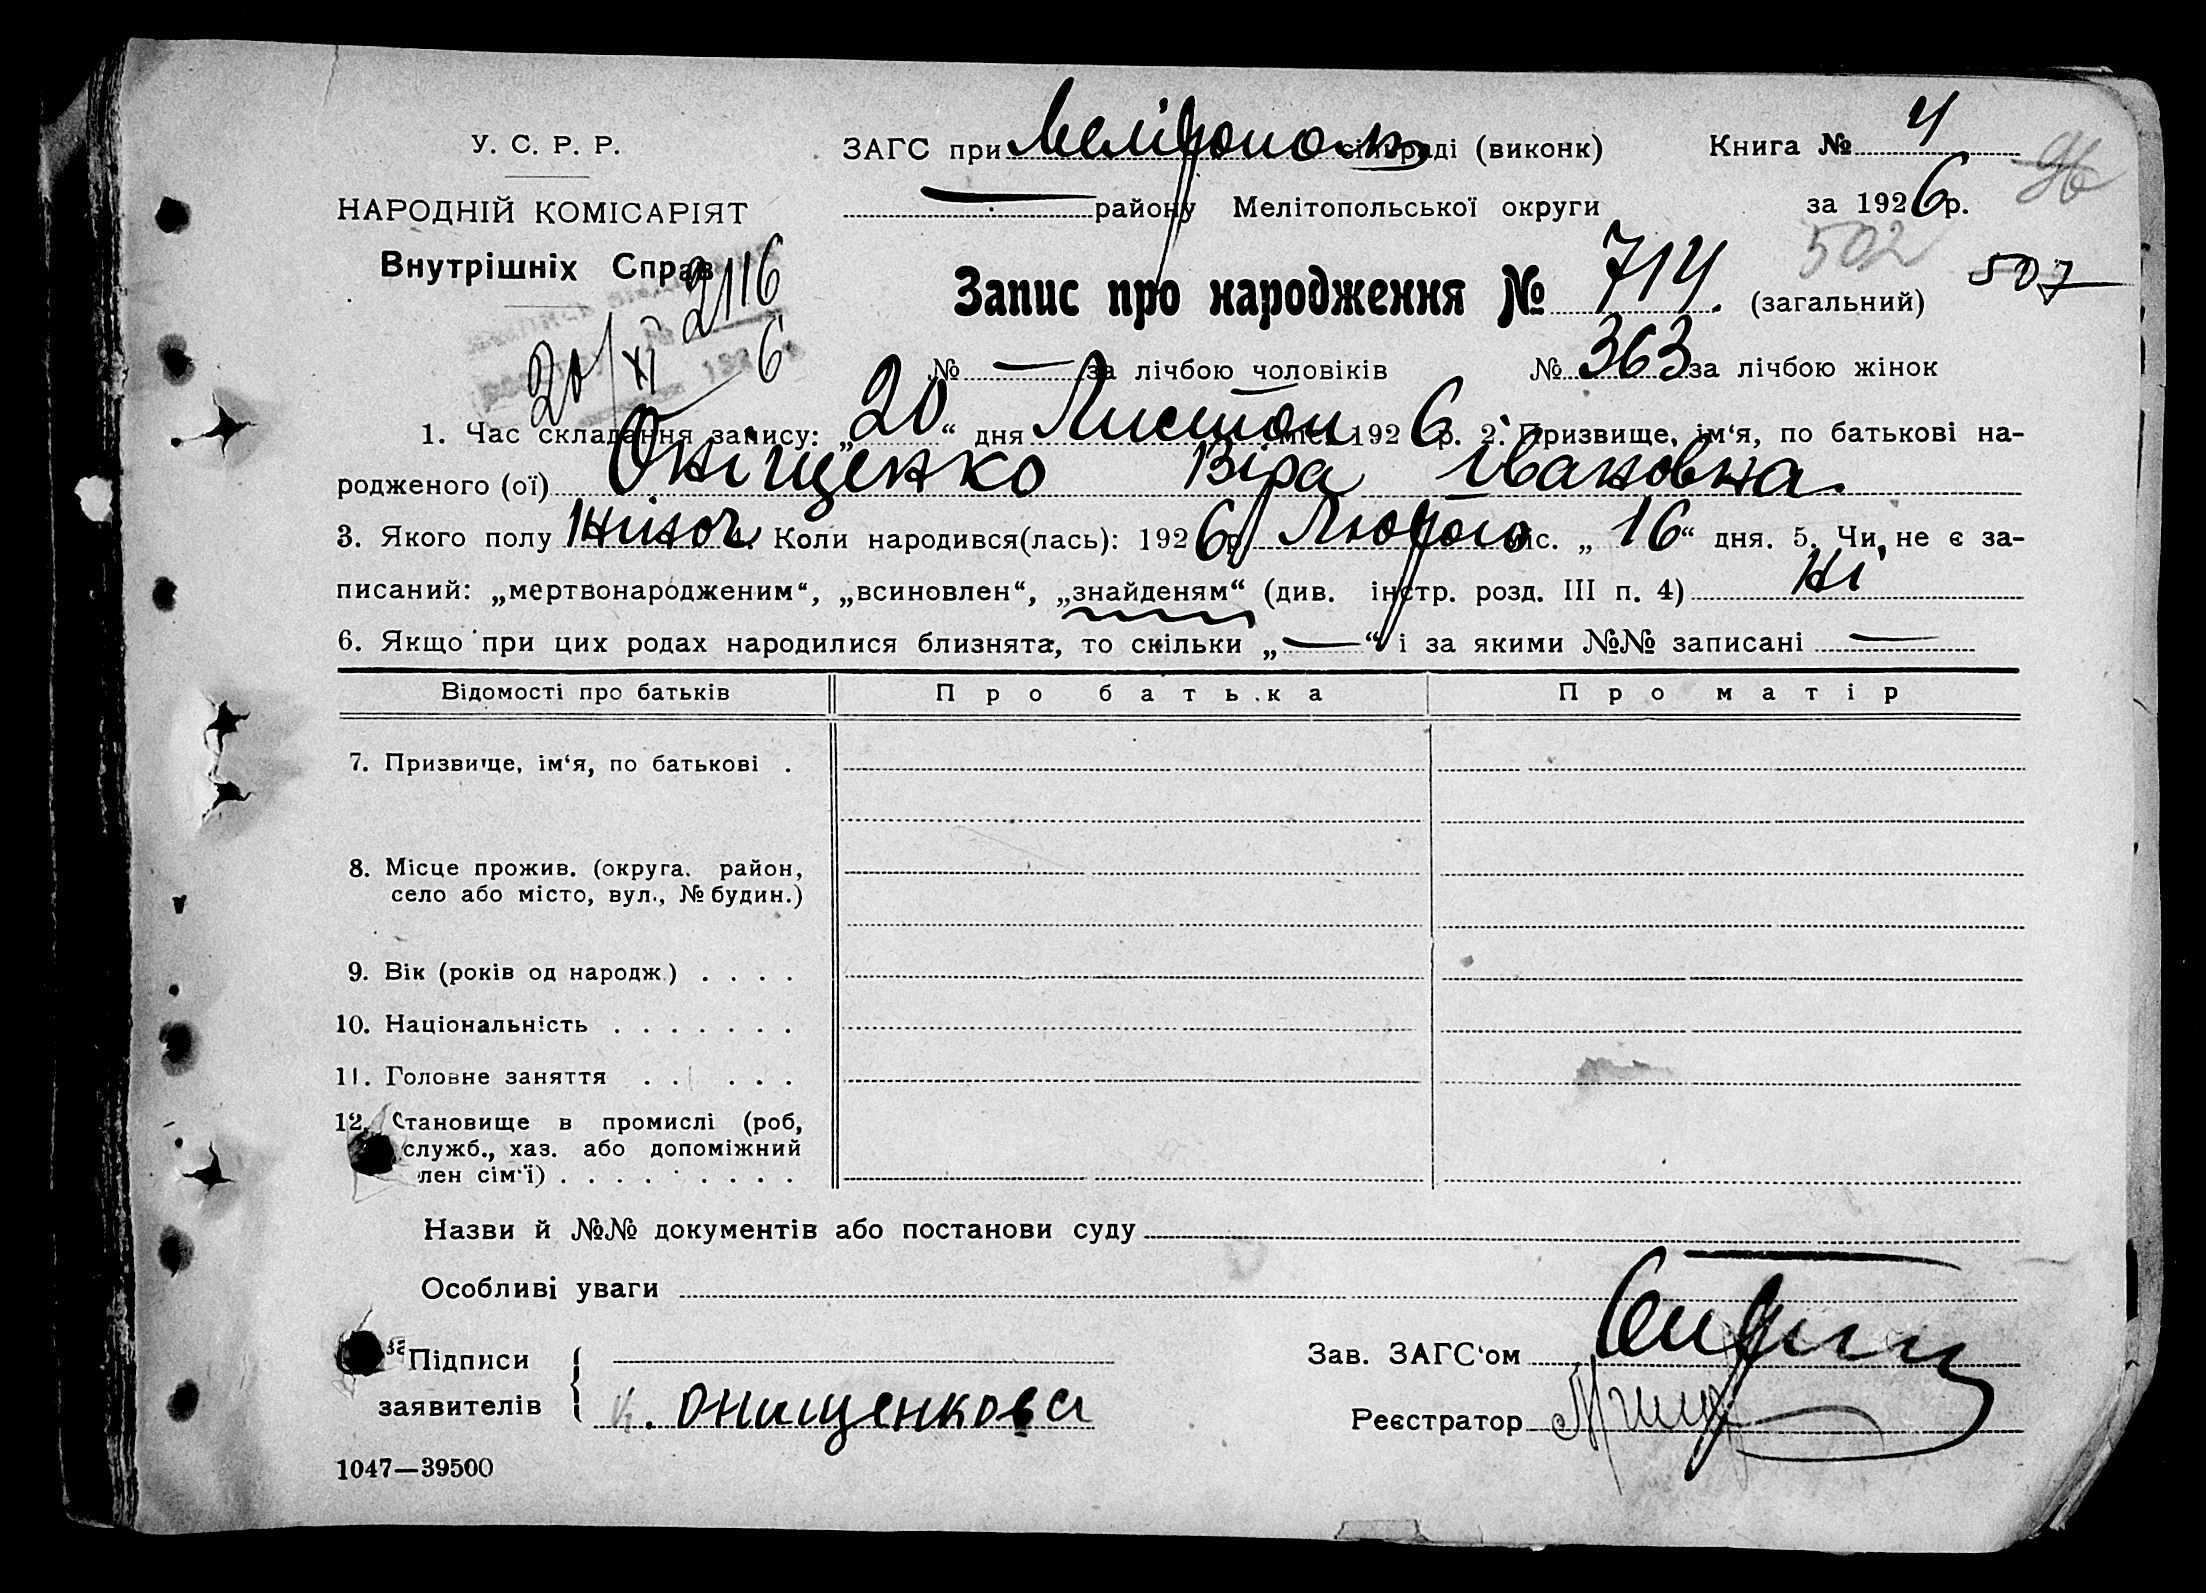 У. С. Р. Р.
НАРОДНІЙ КОМІСАРІЯТ
Внутрішніх Справ
2116
20/XI 6
ЗАГС при Мелітополь сільраді (виконк)
— району Мелітопольської округи
Книга № 4
96
за 1926 р.
502
507
Запис про народження № 714. (загальний)
№ — за лічбою чоловіків № 363 за лічбою жінок
1. Час складання запису: „20“ дня Листоп міс. 1926 р. 2. Призвище, ім‘я, по батькові на-
родженого (ої) Оніщенко Віра Івановна.
3. Якого полу жіноч 4. Коли народився(лась): 1926 р. Лютого міс. „16“ дня. 5. Чи не є за-
писаний: „мертвонародженим“, „всиновлен“, „знайденям“ (див. інстр. розд. III п. 4) ні
6. Якщо при цих родах народилися близнята, то скільки „—“ і за якими №№ записані —
Відомості про батьків Про батька Про матір
7. Призвище, ім‘я, по батькові .
8. Місце прожив. (округа, район,
село або місто, вул., № будин.)
9. Вік (років од народж.) . . . .
10. Національність . . . . . . .
11. Головне заняття . . . . .
12. Становище в промислі (роб,
служб., хаз. або допоміжний
лен сім‘ї) . . . . . . . .
Назви й №№ документів або постанови суду
Особливі уваги
Підписи
заявителів
Онищенкова
Зав. ЗАГС‘ом
Реєстратор
1047—39500